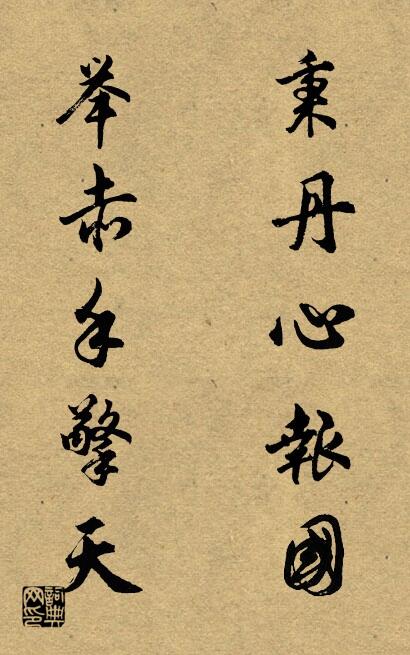 秉丹心報國
举赤手擎天
詞典网印